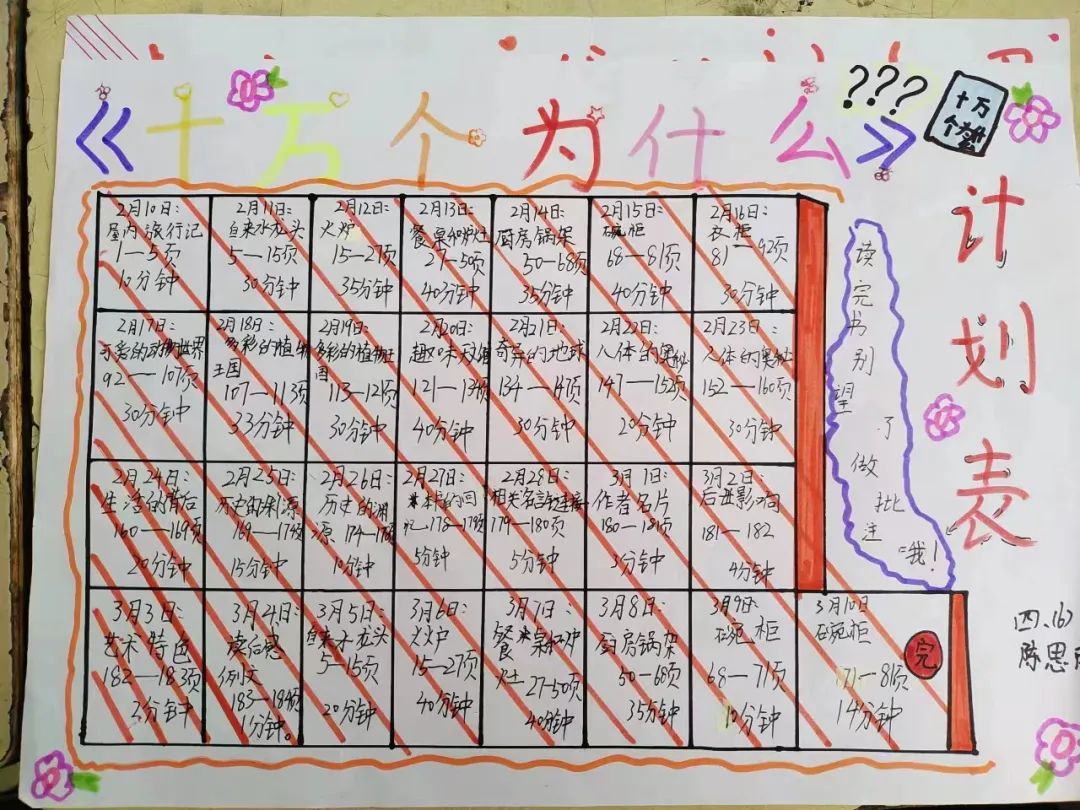 《十万个为什么》
???
十万
个为什
计划表
2月10日：
屋内旅行记
1—5页
10分钟
2月11日：
自来水龙头
5—15页
30分钟
2月12日：
火炉
15—27页
35分钟
2月13日：
餐桌和炉灶
27—50页
40分钟
2月14日：
厨房锅架
50—68页
35分钟
2月15日：
碗柜
68—81页
40分钟
2月16日：
衣柜
81—92页
30分钟
2月17日：
92—107页
30分钟
2月18日：
多彩的植物
王国
107—113页
33分钟
2月19日：
多彩的植物王
国
113—121页
30分钟
2月20日：
趣味
121—134页
40分钟
2月21日：
奇异的地球
134—147页
30分钟
2月22日：
人体的奥秘
147—152页
20分钟
2月23日：
人体的奥秘
152—160页
30分钟
2月24日：
生活的背后
160—169页
20分钟
2月25日：
历史的溯源
169—174页
15分钟
2月26日：
历史的溯
源 174—178页
10分钟
2月27日：
178—179页
5分钟
2月28日：
相关名言链接
179—180页
5分钟
3月1日：
作者名片
180—181页
3分钟
3月2日：
后世影响
181—182
4分钟
3月3日：
艺术特色
182—183页
3分钟
3月4日：
读后感
例文
183—184页
1分钟。
3月5日：
自来水龙头
5—15页
20分钟
3月6日：
火炉
15—27页
40分钟
3月7日：
餐桌和炉
灶 27—50页
40分钟
3月8日：
厨房锅架
50—68页
35分钟
3月9日：
碗柜
68—71页
10分钟
3月10日
碗柜
71—81页
14分钟
完
读完书别望了做批注哦！
四、(6)
陈思